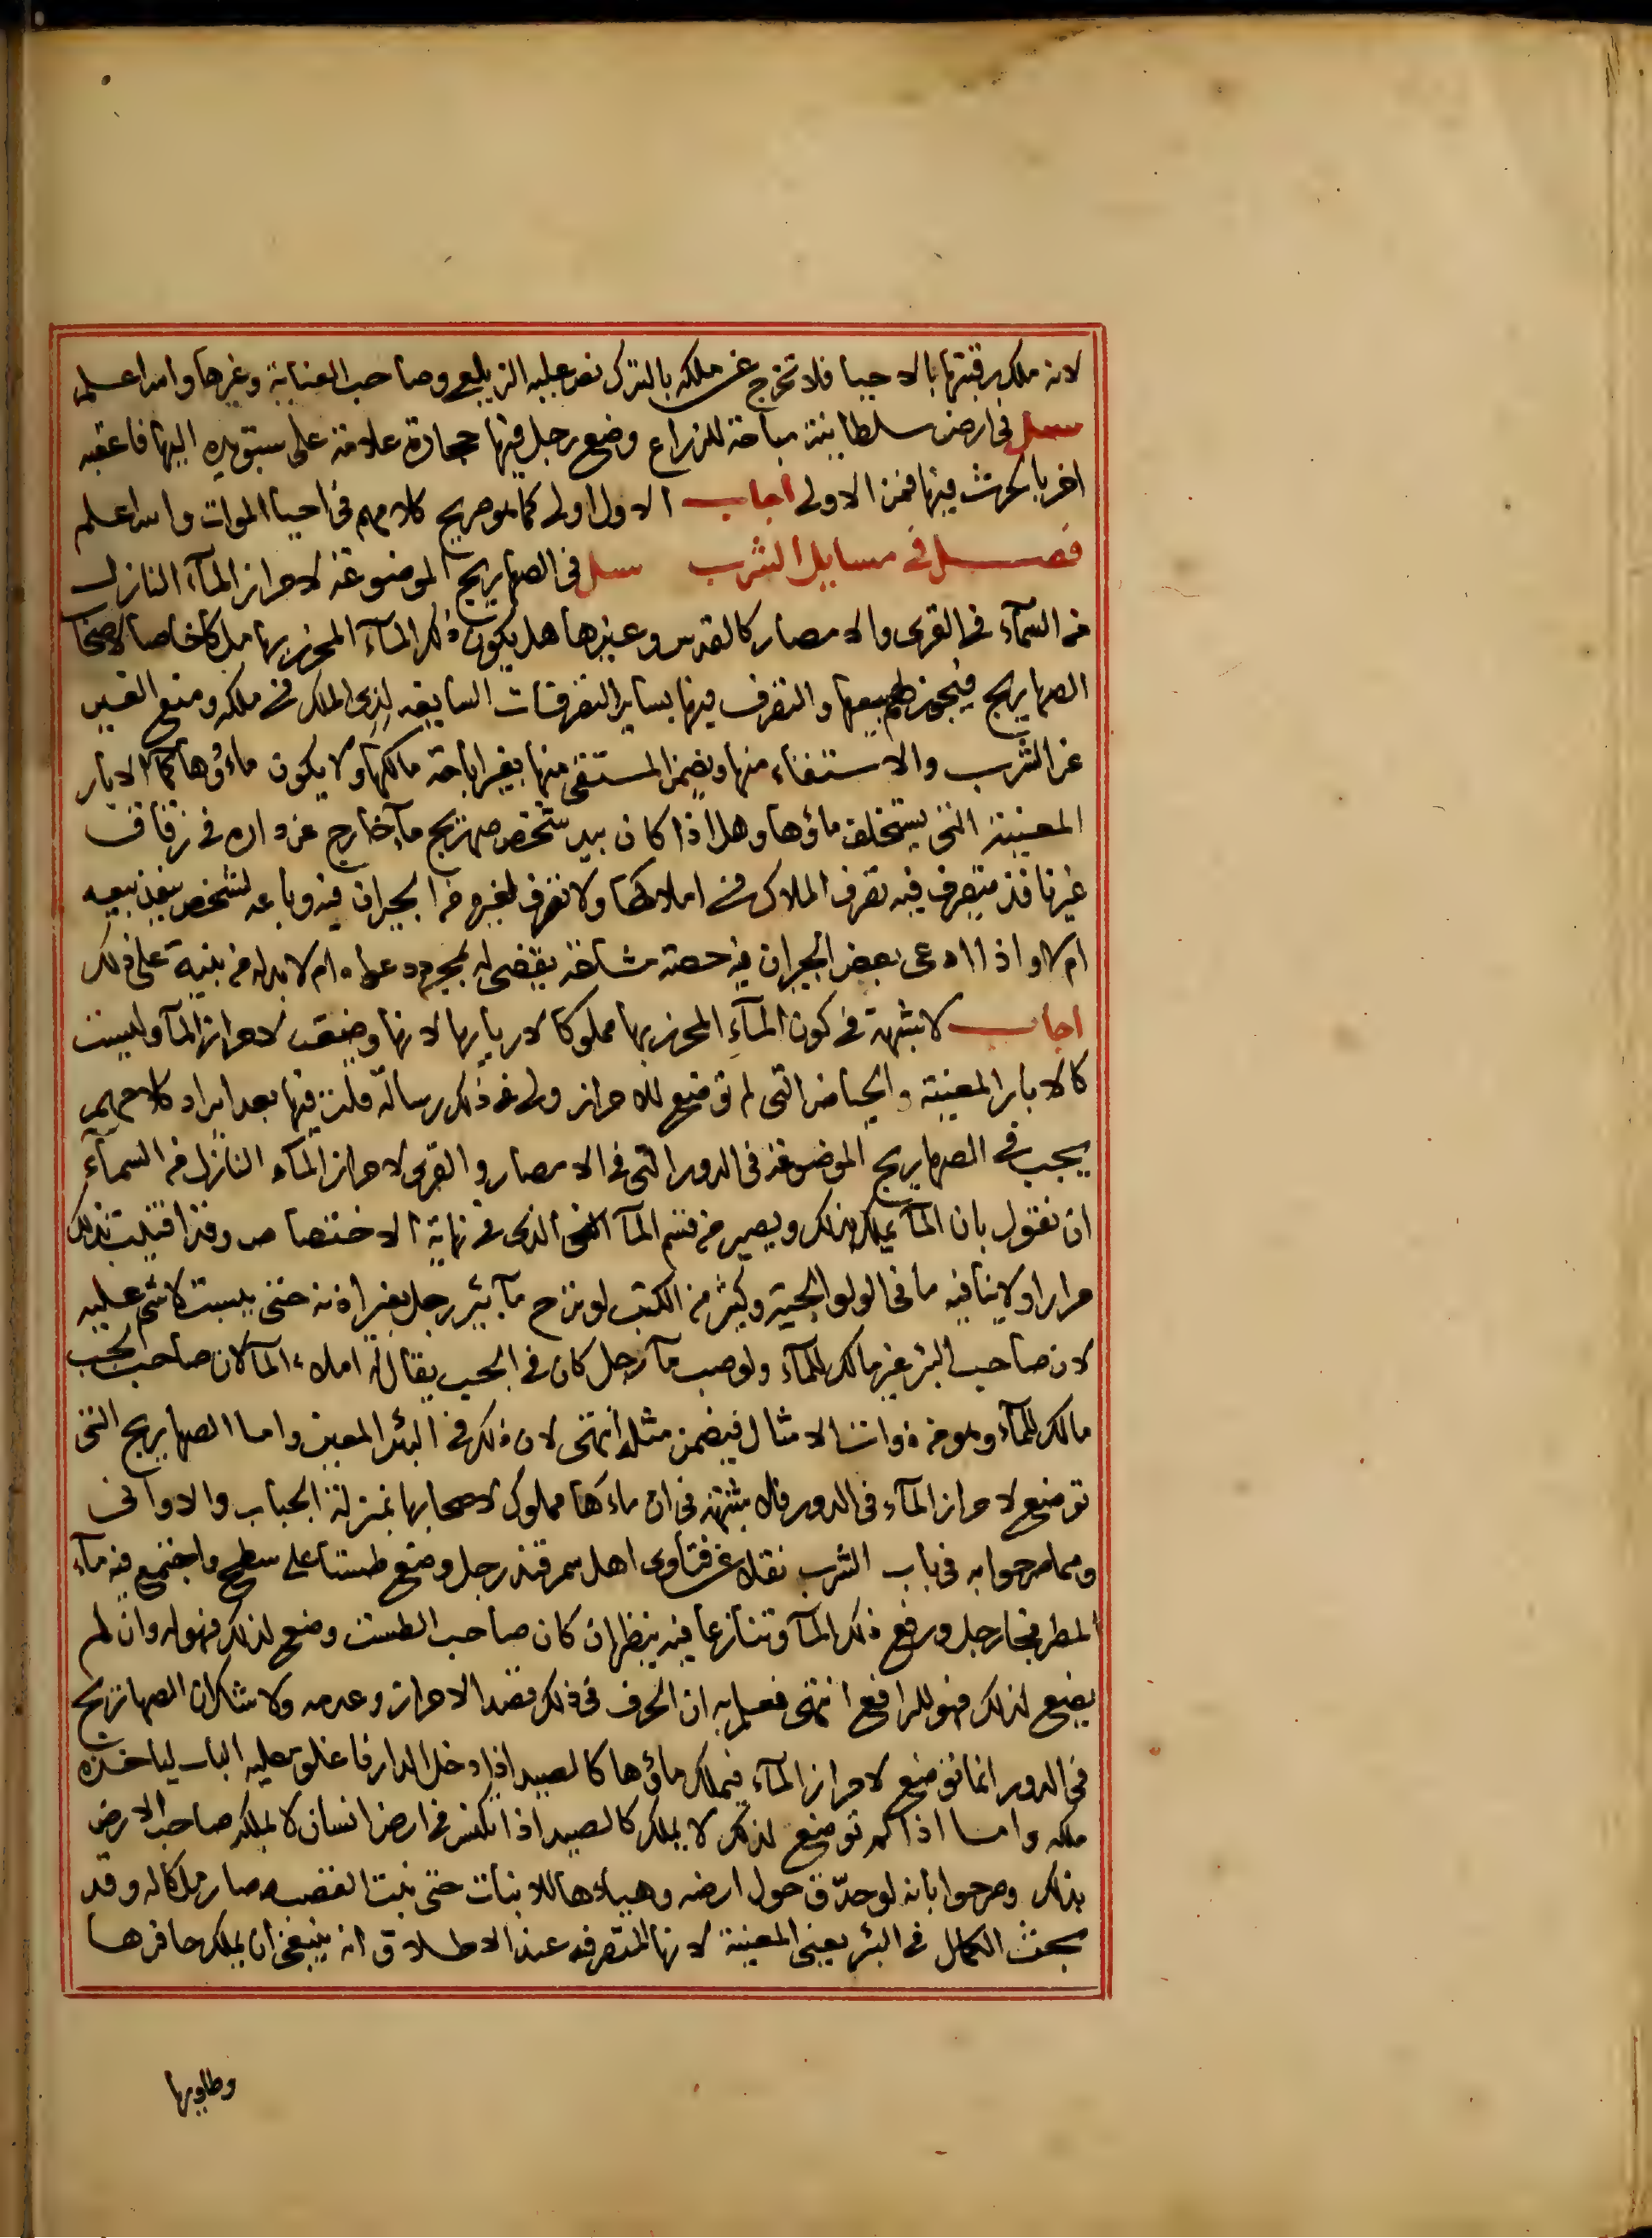 لانه ملك رقبتها بالاحيا فلا تخرج عن ملكه بالترك نص عليه الزيلعي وصاحب العناية وغيرها والله اعلم
سئل في ارض سلطانية مباحة للزراع وضع رجل فيها حجارة علامة على سبق يده اليها فاعقبه
اخر بالحرث فيها فمن الاولى اجاب الاول اولى كما هو صريح كلامهم في احيا الموات والله اعلم
فصل في مسايل الشرب سئل في الصهاريج الموضوعة لاحراز المآء النازل
من السمآء في القرى والامصار كالقدس وغيرها هل يكون ذلك المآء المحرز بها ملكا خاصا لاصحاب
الصهاريج فيجوز لهم بيعها والتصرف فيها بساير التصرفات السايغه لذي الملك في ملكه ومنع الغير
عن الشرب والاستقاء منها ويضمن المستقي منها بغير اباحة مالكها ولا يكون ماؤها كمآ الابار
المعينة التي يستخلف ماؤها وهل اذا كان بيد شخص صهريج مآ خارج عن داره في زقاق
غير نافذ متصرف فيه تصرف الملاك في املاكها ولا تصرف لغيره من الجيران فيه وباعه لشخص ينفذ بيعه
ام لا واذا ادعى بعض الجيران فيه حصة مشاعة يقضى له بمجرد دعواه ام لا بد له من بينة على ذلك
اجاب لا شبهة في كون المآء المحرز بها مملوكا لاربابها لانها وضعت لاحراز المآ وليست
كالابار المعينة والحياض التي لم توضع للاحراز ولي في ذلك رسالة قلت فيها بعد ايراد كلامهم
يجب في الصهاريج الموضوعة في الدور التي في الامصار والقرى لاحراز المآء النازل من السمآء
ان نقول بان المآ يملك بذلك ويصير من قسم المآ الذي في نهاية الاختصاص وقد افتيت بذلك
مرارا ولا ينافيه ما في الولوالجية وكثير من الكتب لو نزح مآ بئر رجل بغير اذنه حتى يبست لا شئ عليه
لان صاحب البئر غير مالك للمآء ولو صب مآ رجل كان في الحب يقال له املاء المآ لان صاحب الحب
مالك للمآء وهو من ذوات الامثال فيضمن مثله انتهى لان ذلك في البئر المعين واما الصهاريج التي
توضع لاحراز المآء في الدور فلا شبهة في ان ماءها مملوك لاصحابها بمنزلة الحباب والاواني
ومما صرحوا به في باب الشرب نقلا عن فتاوى اهل سمرقند رجل وضع طستا على سطح فاجتمع فيه مآء
المطر فجا رجل ورفع ذلك المآ وتنازعا فيه ينظر ان كان صاحب الطست وضع لذلك فهو له وان لم
يضع لذلك فهو للرافع انتهى فعلم به ان الحرف في ذلك قصد الاحراز وعدمه ولا شك ان الصهاريج
في الدور انما توضع لاحراز المآء فيملك ماؤها كالصيد اذا دخل الدار فاغلق عليه الباب لياخذه
ملكه واما اذا لم توضع لذلك لا يملك كالصيد اذا تكنس في ارض انسان لا يملكه صاحب الارض
بذلك وصرحوا بانه لو حدق حول ارضه وهيأها للانبات حتى نبت القصب صار ملكا له وقد
بحث الكمال في البئر يعني المعينة لانها المتصرفه عند الاطلاق انه ينبغي ان يملك حافرها
وطاويها